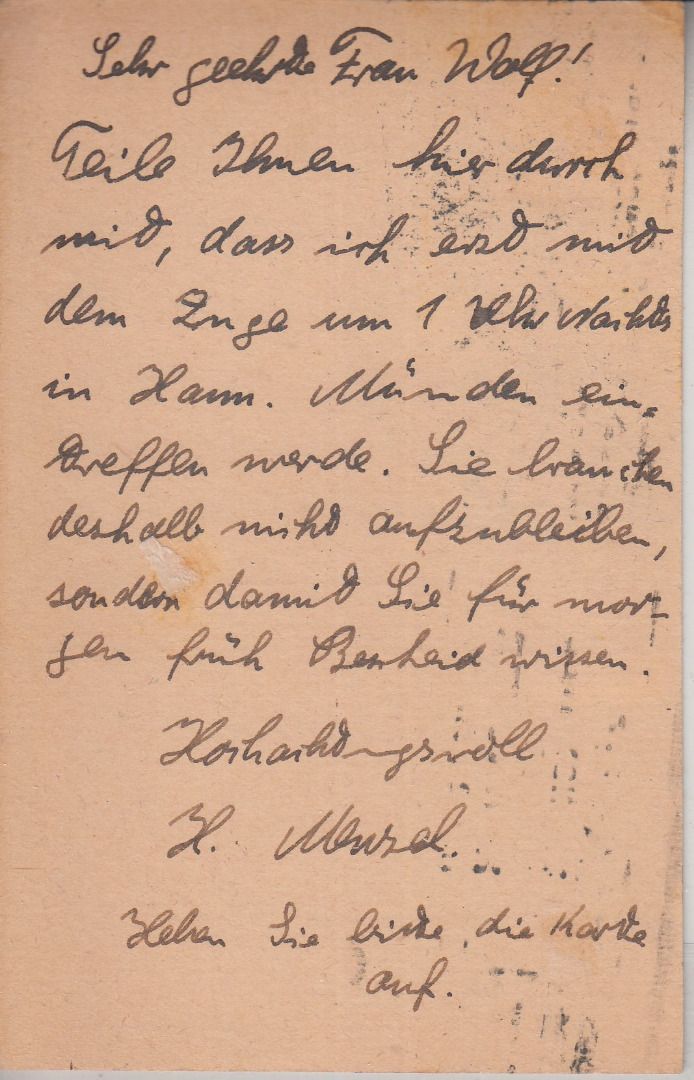 Sehr geehrte Frau Wolf!
Teile Ihnen hier durch
mit, dass ich erst mit
dem Zuge um 1 Uhr Nachts
in Hann. Münden ein=
treffen werde. Sie brauchen
deshalb nicht aufzubleiben,
sondern damit Sie für mor-
gen früh Bescheid wissen.
Hochachtungsvoll
H. Menzel.
Heben Sie bitte, die Karte
auf.